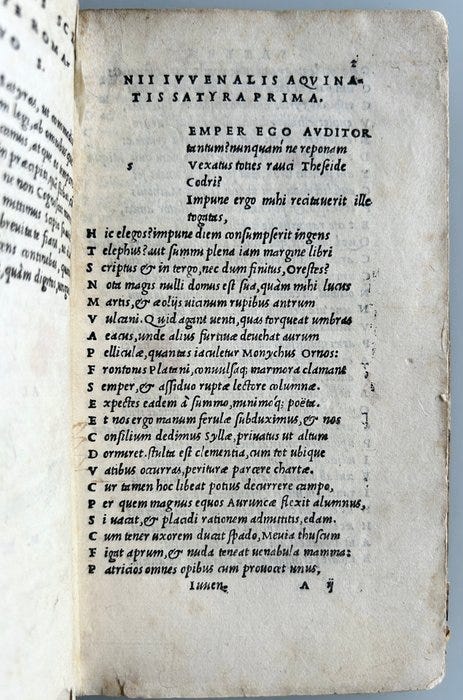 T SCI
E ROMA
O S.
2
NII IVVENALIS AQVINA-
TIS SATYRA PRIMA.
EMPER EGO AVDITOR
tantum? nunquam ne reponam
s Vexatus toties rauci Theseide
Codri?
Impune ergo mihi recitauerit ille
togatas,
H ic elegos? impune diem consumpserit ingens
T elephus? aut summi plena iam margine libri
S criptus & in tergo, nec dum finitus, Orestes?
N ota magis nulli domus est sua, quàm mihi lucus
M artis, & æolijs uicinum rupibus antrum
V ulcani. Quid agant uenti, quas torqueat umbras
A eacus, unde alius furtiuæ deuehat aurum
P elliculæ, quantas iaculetur Monychus Ornos:
F rontonis Platani, conuulsaq; marmora clamant
S emper, & assiduo ruptæ lectore columnæ.
E xpectes eadem à summo, minimoq; poëta.
E t nos ergo manum ferulæ subduximus, & nos
C onsilium dedimus Syllæ, priuatus ut altum
D ormiret. stulta est clementia, cum tot ubique
V atibus occurras, perituræ parcere chartæ.
C ur tamen hoc libeat potius decurrere campo,
P er quem magnus equos Auruncæ flexit alumnus,
S i uacat, & placidi rationem admittitis, edam.
C um tener uxorem ducat spado, Meuia thuscum
F igat aprum, & nuda teneat uenabula mamma:
P atricios omnes opibus cum prouocet unus,
Iuuen. A ij